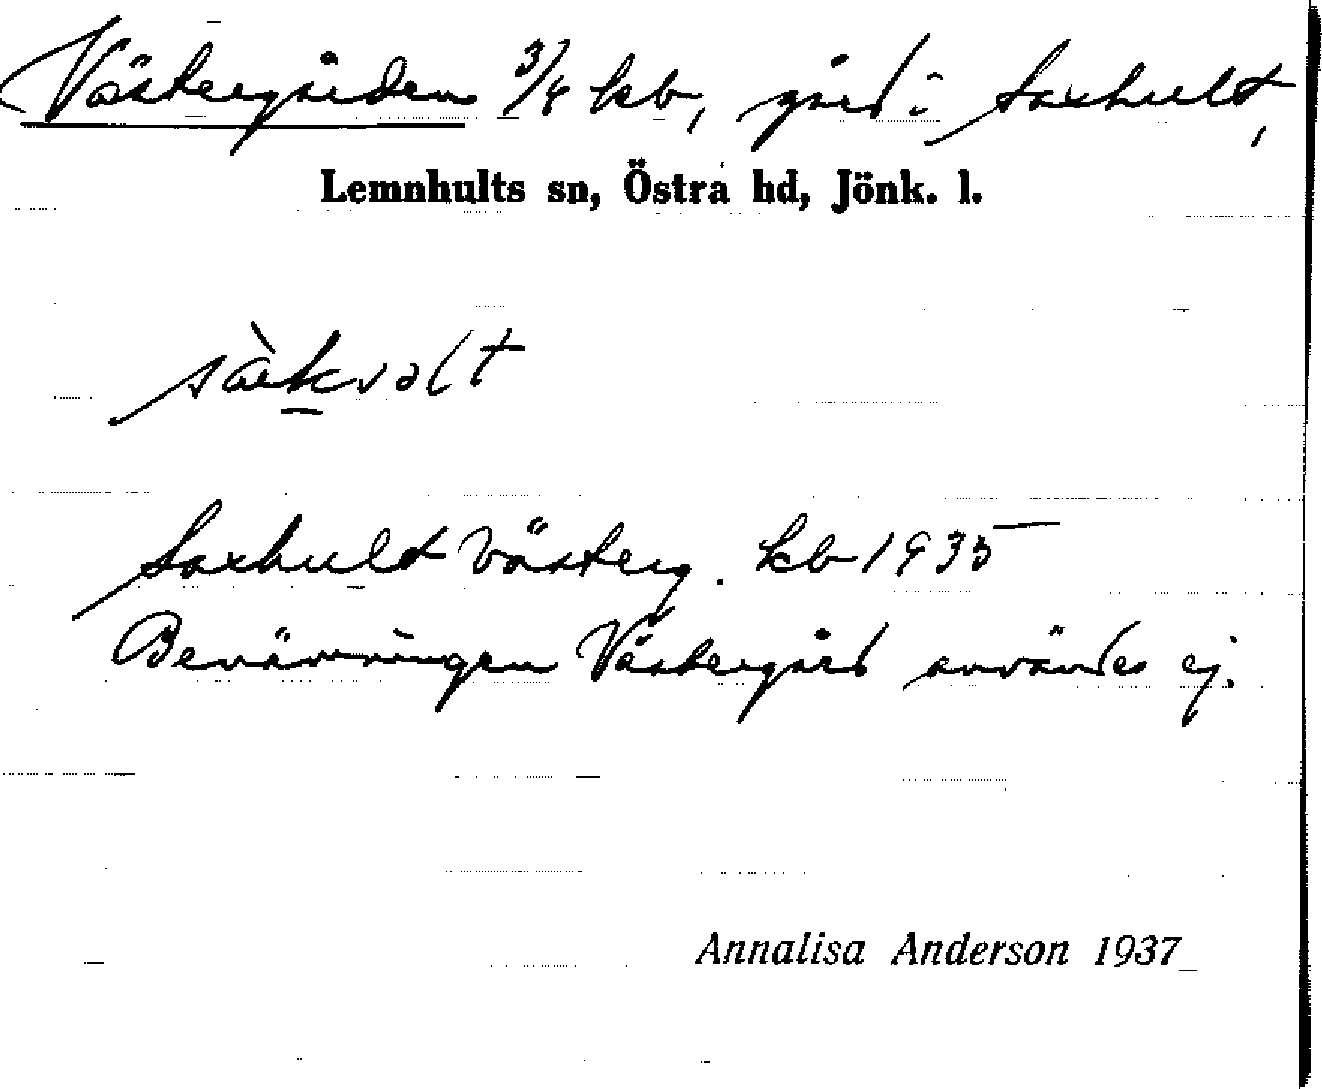 Västergården 3/8 kb, gård i Saxhult,
Lemnhults sn, Östra hd, Jönk. l.
Saxhult Västerg. kb 1935
Benämningen Västergård användes ej.
Annalisa Anderson 1937